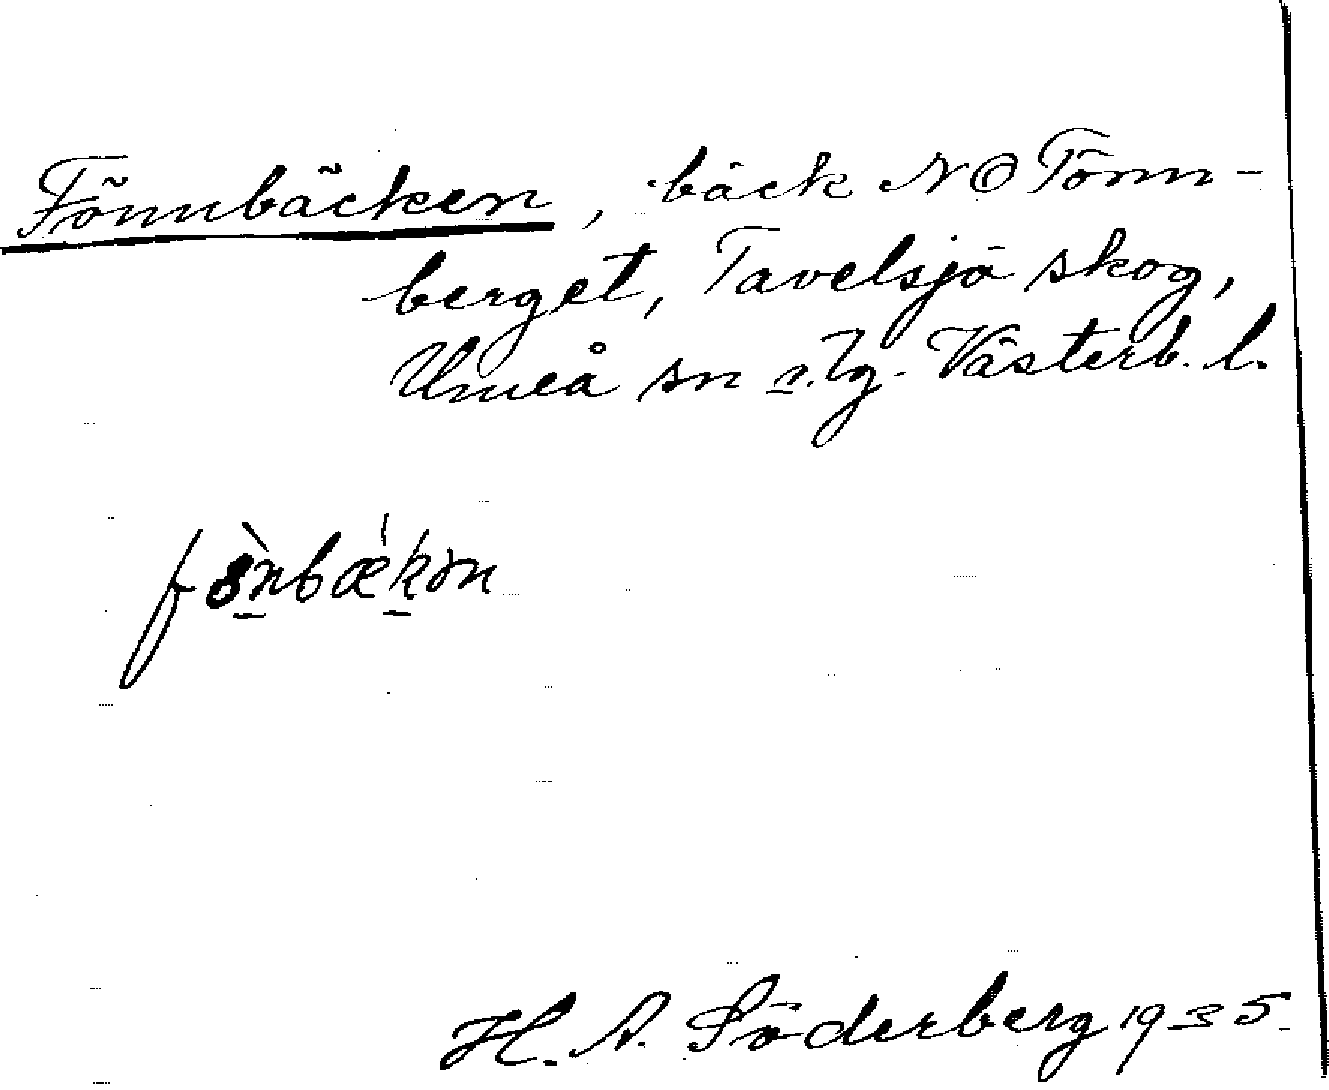 Fönnbäcken, bäck NO Tönn-
berget, Tavelsjö skog,
Umeå sn o. tg. Västerb. l.
fön̲bæk̲ən
H. A. Söderberg 1935.